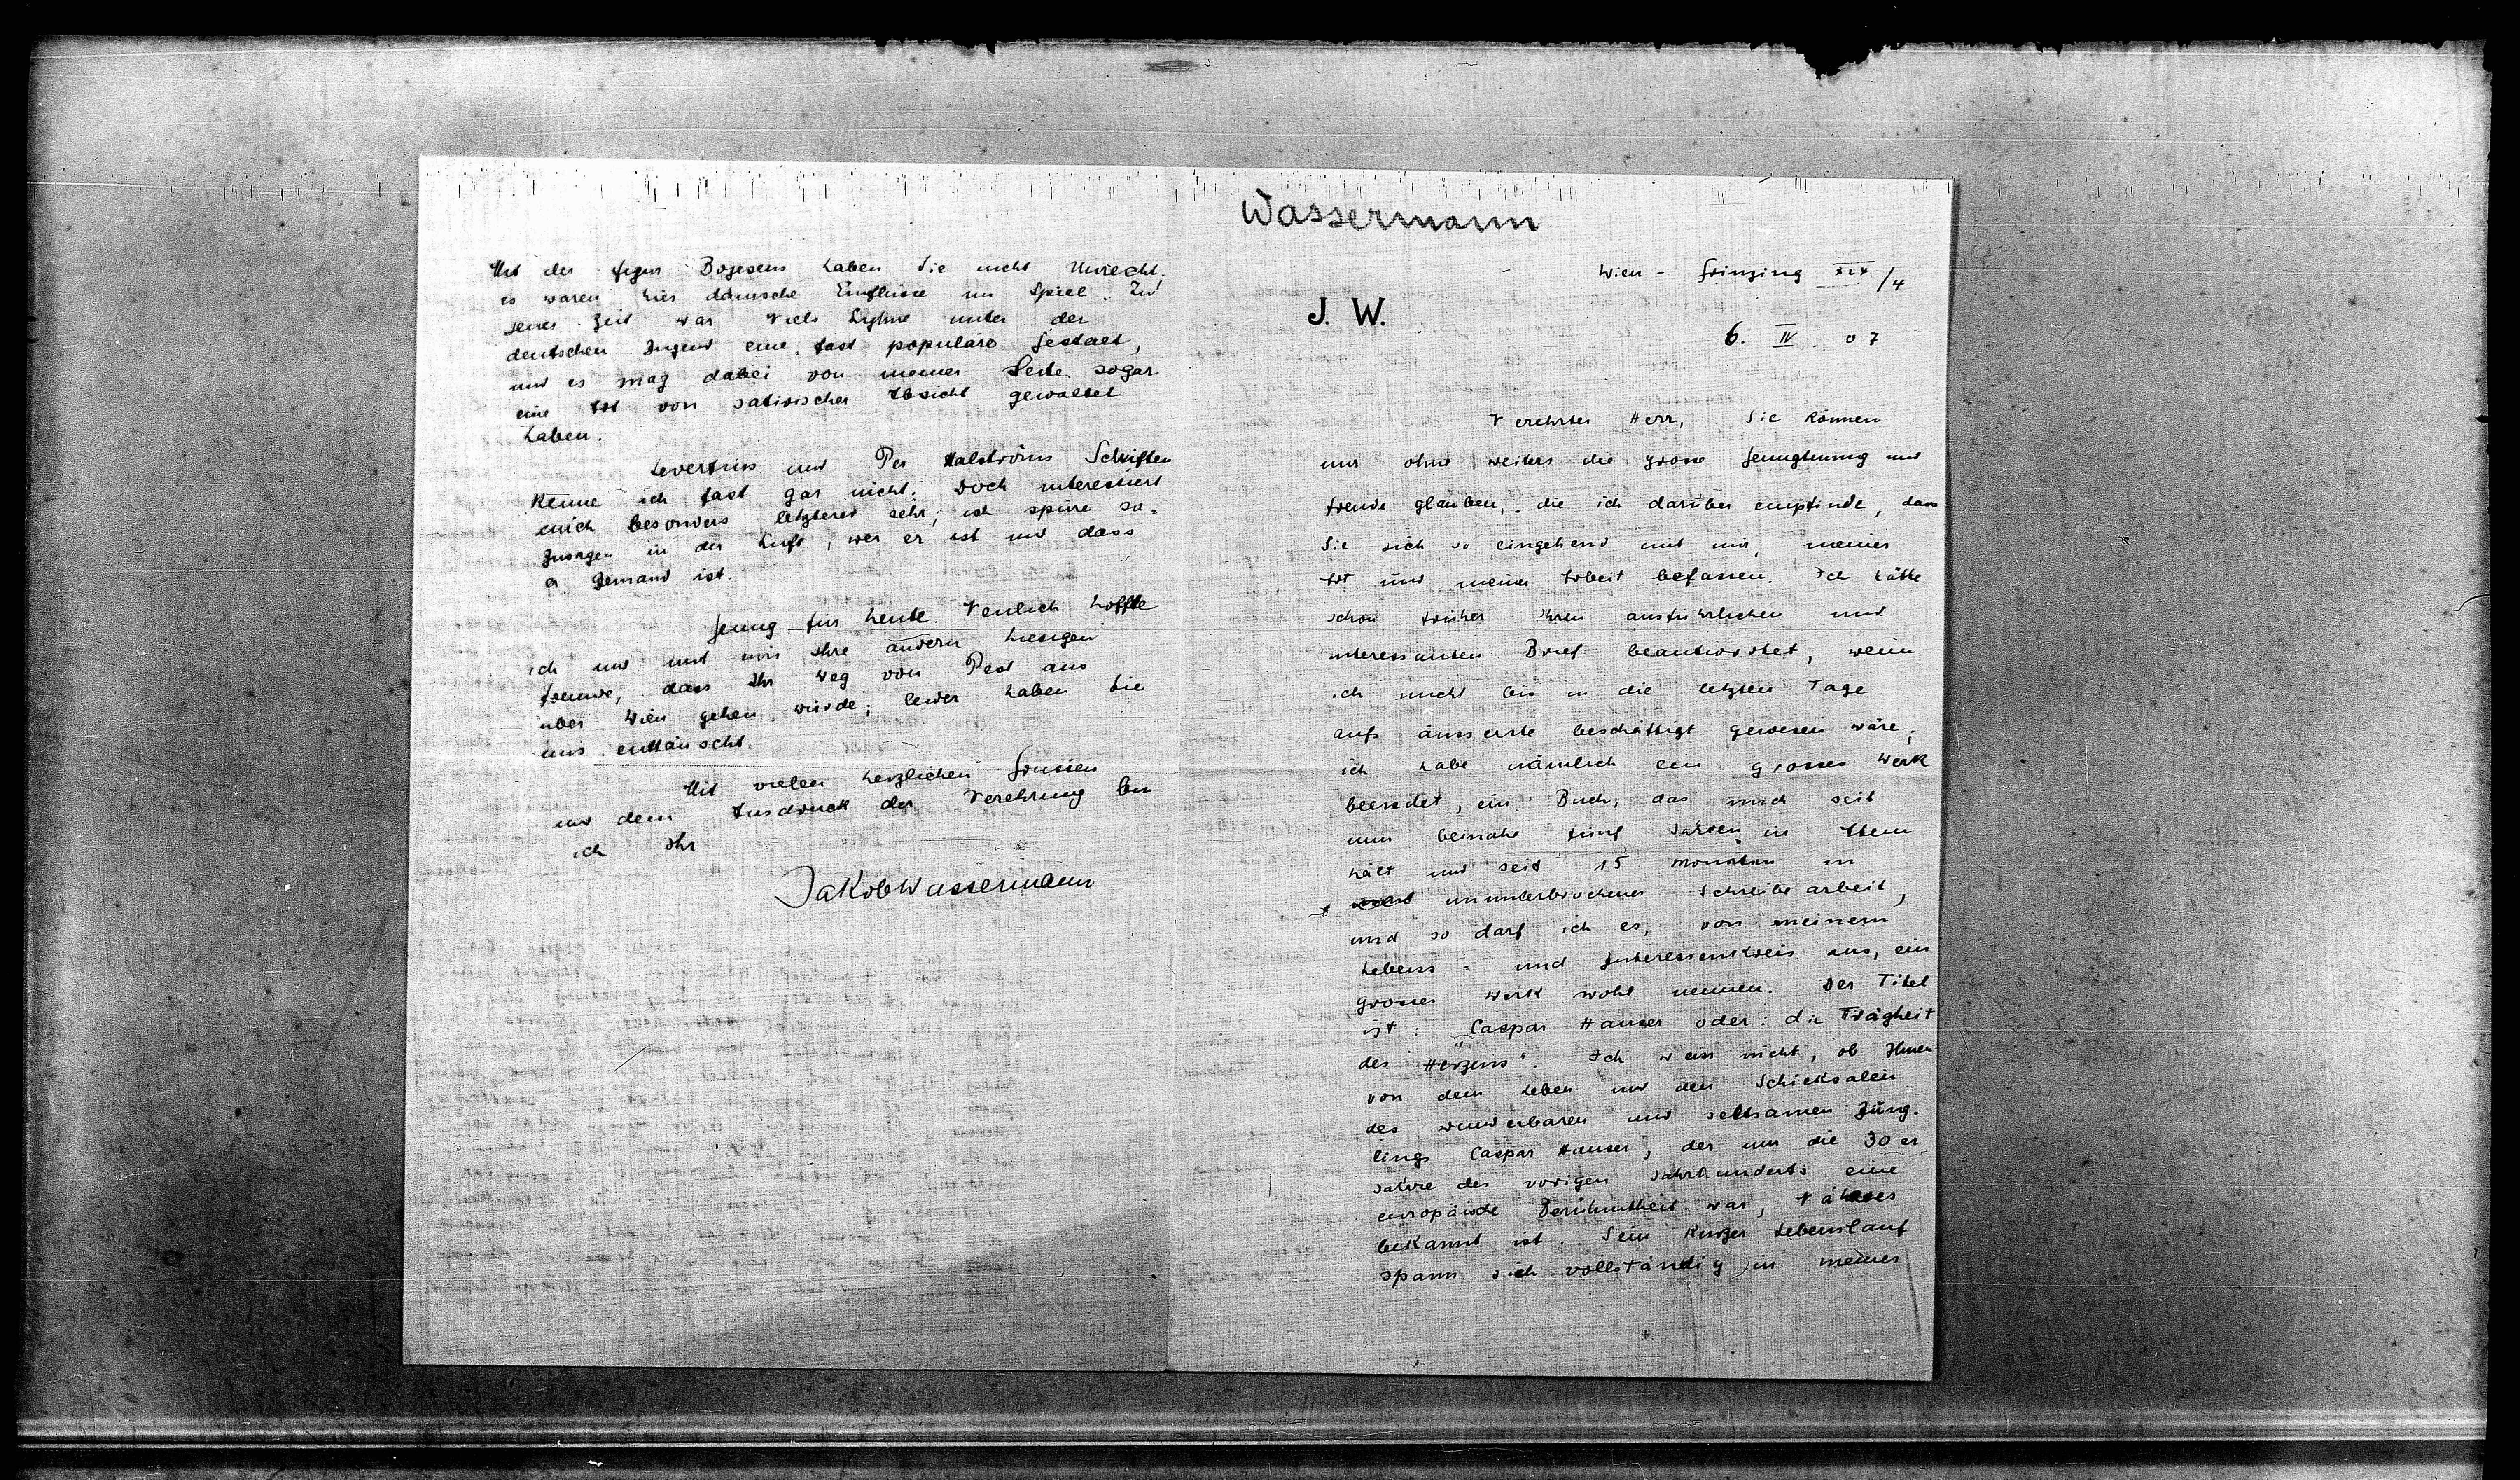 Wassermann
Wien - Grinzing XIX/4
J. W.
6. IV. 07
Verehrter Herr, Sie können
mir ohne weiters die grosse Genugtuung und
Freude glauben, die ich darüber empfinde, dass
Sie sich so eingehend mit mir, meiner
Art und meiner Arbeit befassen. Ich hätte
schon früher Ihren ausführlichen und
interessanten Brief beantwortet, wenn
ich nicht bis in die letzten Tage
aufs äusserste beschäftigt gewesen wäre;
ich habe nämlich ein grosses Werk
beendet, ein Buch, das mich seit
nun beinahe fünf Jahren in Atem
hält und seit 15 Monaten in
ununterbrochener Schreibearbeit,
und so darf ich es, von meinem
Lebens- und Interessenkreis aus, ein
grosses Werk wohl nennen. Der Titel
ist: "Caspar Hauser oder: die Trägheit
des Herzens". Ich weiss nicht, ob Ihnen
von dem Leben und den Schicksalen
des wunderbaren und seltsamen Jüng-
lings Caspar Hauser, der um die 30er
Jahre des vorigen Jahrhunderts eine
europäische Berühmtheit war, Näheres
bekannt ist. Sein kurzer Lebenslauf
spann sich vollständig in meiner
Mit der Figur Bojesens haben Sie nicht Unrecht.
es waren hier dänische Einflüsse im Spiel. Zu
jener Zeit war Niels Lyhne unter der
deutschen Jugend eine fast populäre Gestalt,
und es mag dabei von meiner Seite sogar
eine Art von satirischer Absicht gewaltet
haben.
Levertins und Per Halströms Schriften
kenne ich fast gar nicht. Doch interessiert
mich besonders letzterer sehr; ich spüre so-
zusagen in der Luft, wer er ist und dass
er Jemand ist.
Genug für heute. Neulich hoffte
ich und mit mir Ihre andern hiesigen
Freunde, dass Ihr Weg von Pest aus
über Wien gehen würde; leider haben Sie
uns enttäuscht.
Mit vielen herzlichen Grüssen
und dem Ausdruck der Verehrung bin
ich Ihr
Jakob Wassermann